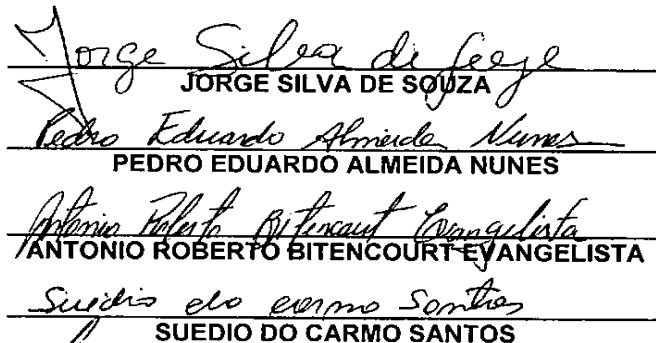 Jorge Silva de Souza
JORGE SILVA DE SOUZA
Pedro Eduardo Almeida Nunes
PEDRO EDUARDO ALMEIDA NUNES
Antonio Roberto Bitencourt Evangelista
ANTONIO ROBERTO BITENCOURT EVANGELISTA
Suédio do carmo Santos
SUEDIO DO CARMO SANTOS